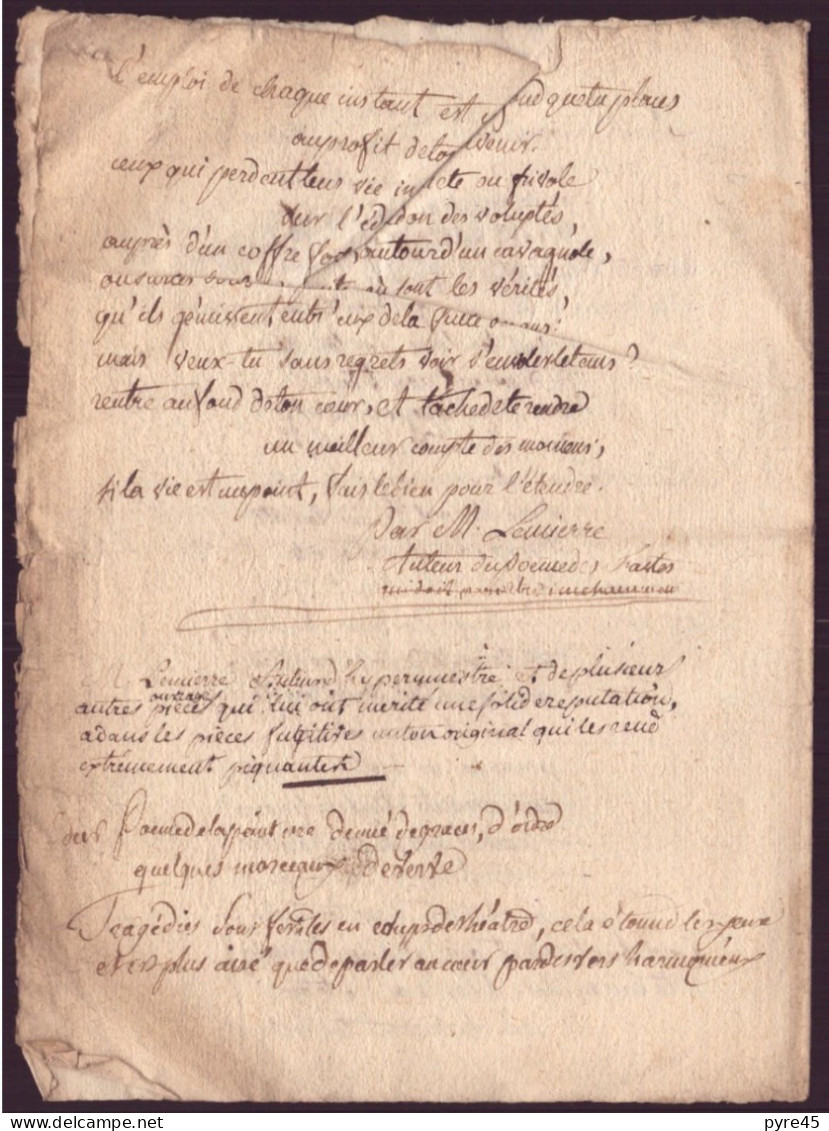 l'emploi de chaque instant est
au profit de ton
ceux qui perdent leur vie inquiete ou frivole
sur l'édredon des voluptés,
auprès d'un coffre fort autour d'un cavagnole,
où sont les vérités,
qu'ils gémissent entr'eux de la
mais veux-tu sans regrets voir s'envoler le tems?
rentre au fond de ton cœur, et tâche de te rendre
un meilleur compte des momens,
si la vie est un point, fais le bien pour l'étendre.
Par M. Lemierre
Auteur du Poeme des Fastes
M. Lemierre Auteur d'hypermnestre et de plusieurs
autres pièces ouvrages qui lui ont mérité une solide reputation,
a dans les pièces fugitives un ton original qui les rend
extrémement piquantes
Poeme de la peinture denué de graces, d'ordre
quelques morceaux de verve
Tragédies sont fertiles en coups de théatre, cela étonne les yeux
et est plus aisé que de parler au cœur par des vers harmonieux
pyre45